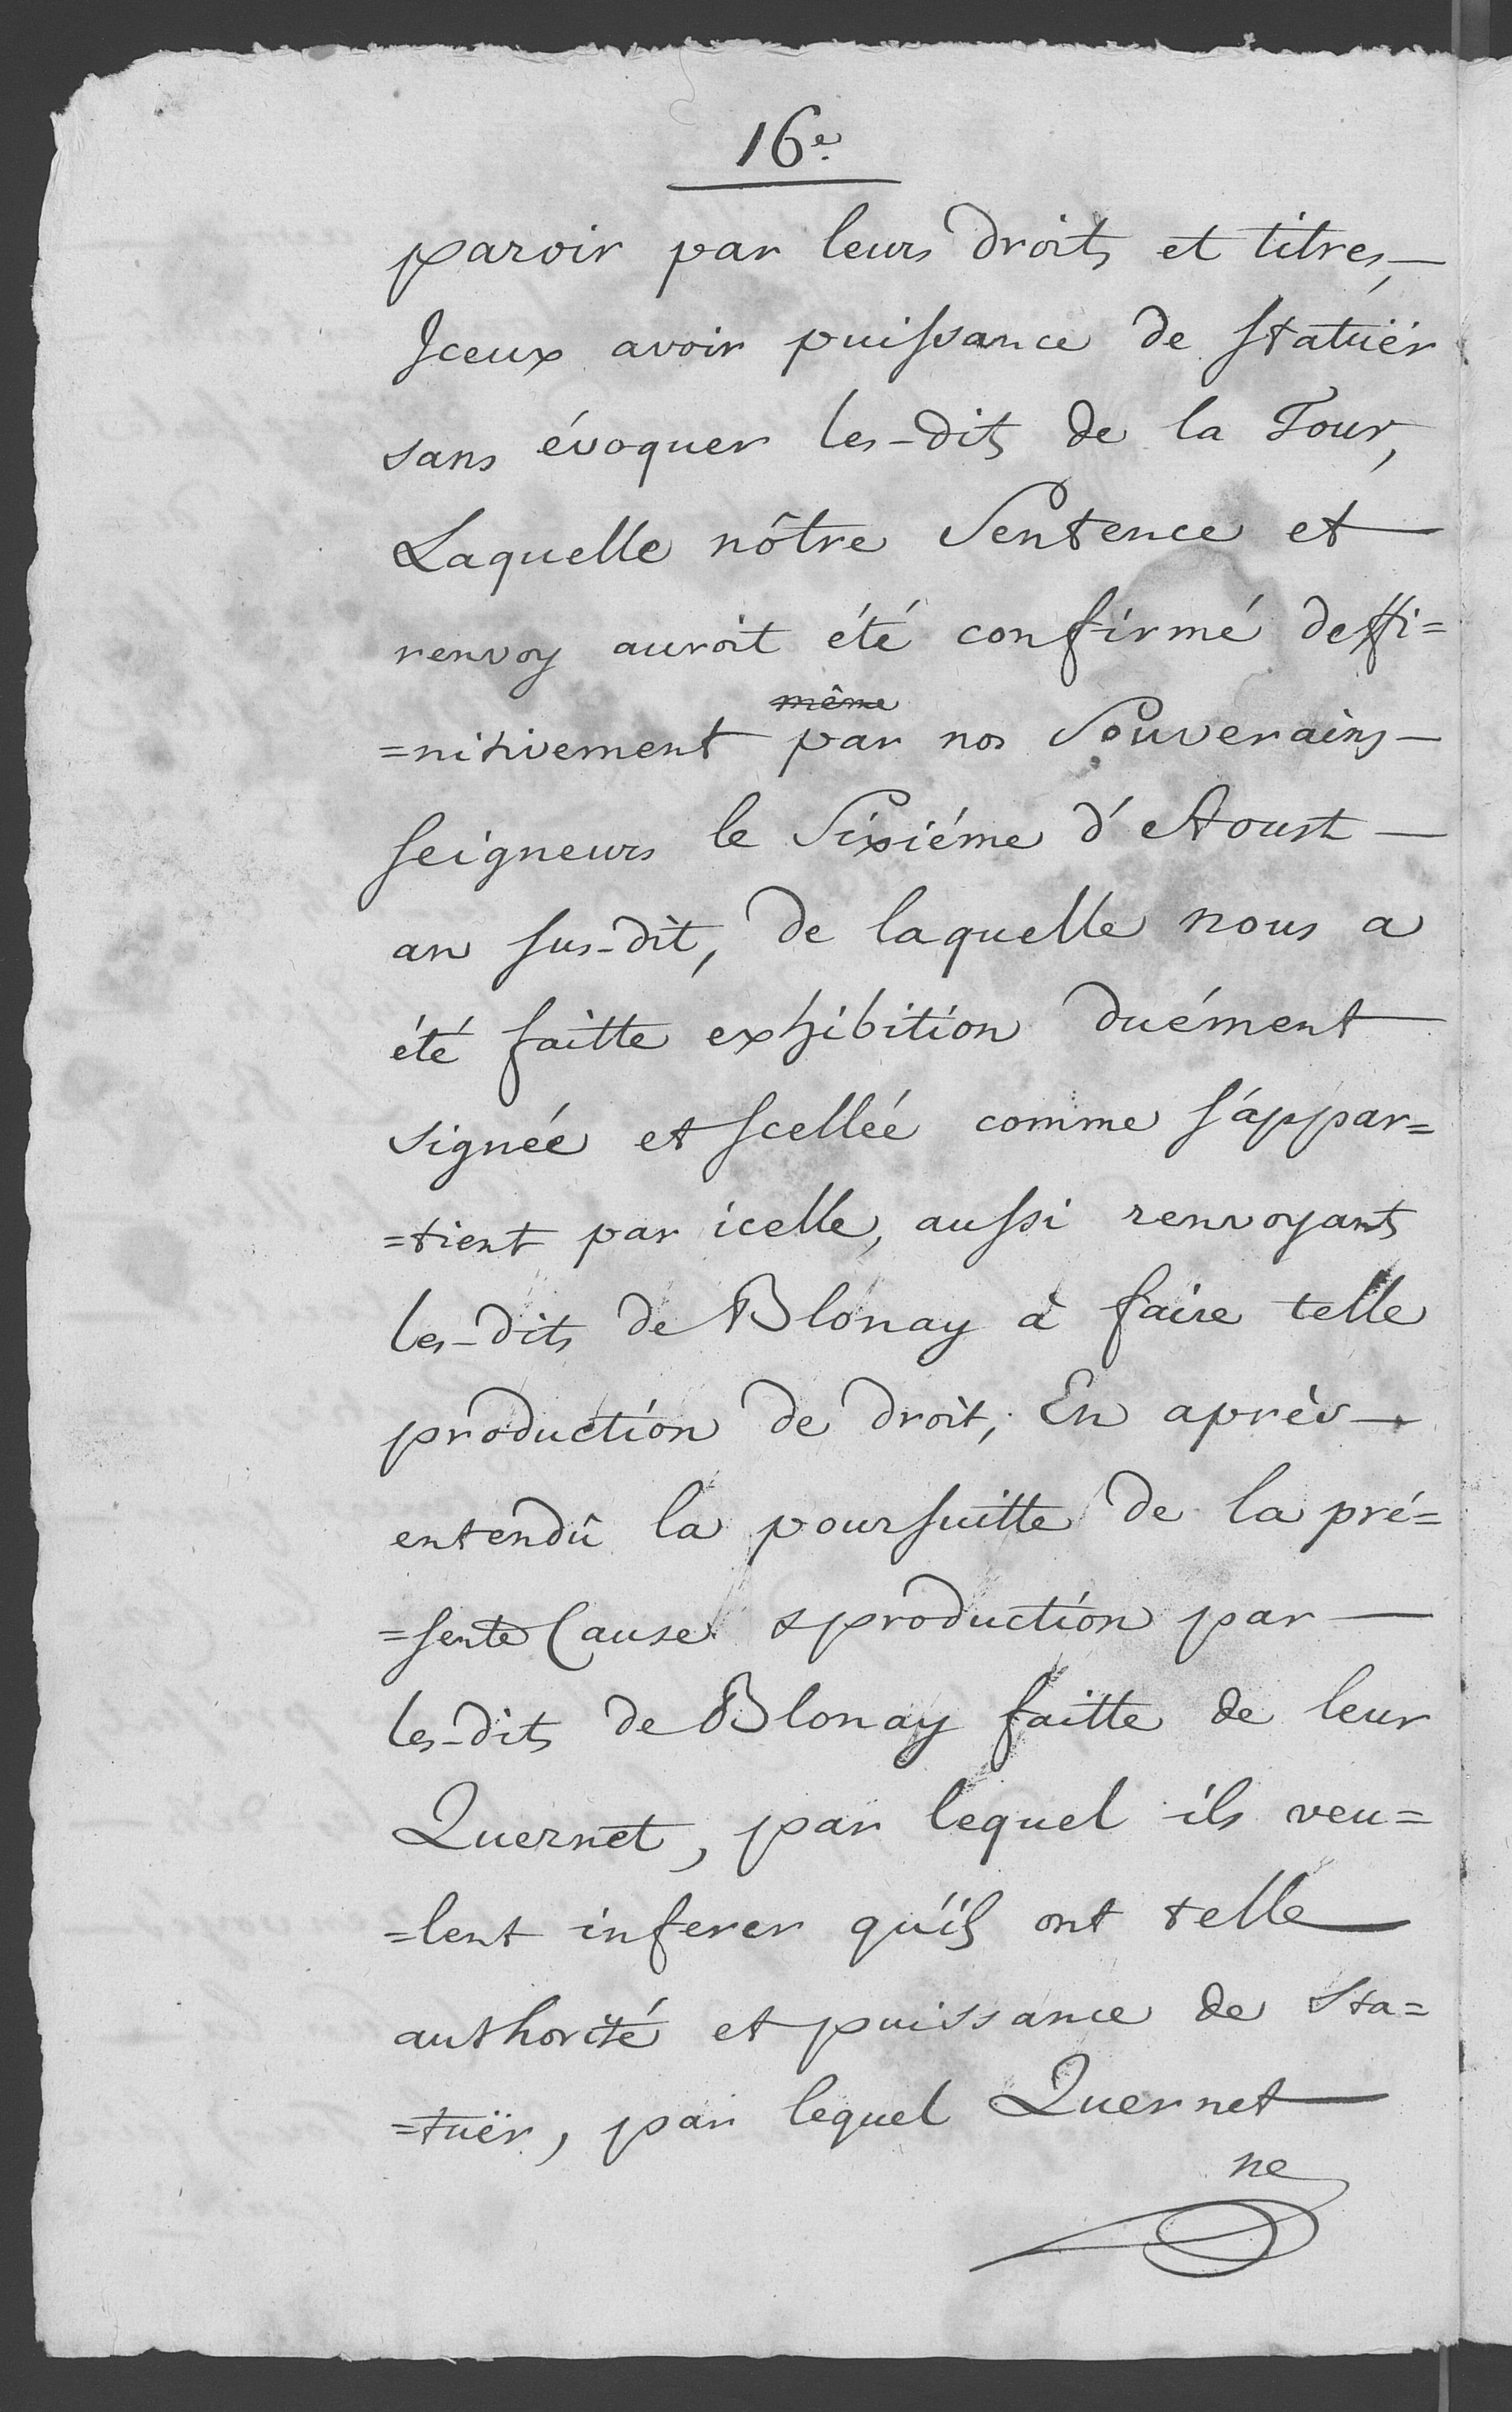 16e.
paroir par leurs droits et titres,—
Iceux avoir puissance de statuër
sans évoquer les-dits de la Tour,
Laquelle nôtre Sentence et—
renvoy auroit été confirmé deffi=
même
=nitivement par nos Souverains—
seigneurs le Sixiéme d'Aoust—
an sus-dit, de laquelle nous a
été faitte exhibition duément—
signéé et scelléé comme s'appar=
=tient par icelle, aussi renvoyants
les-dits de Blonay à faire telle
production de droit; En après—
entendû la poursuitte de la pré=
=sente Cause & production par—
les-dits de Blonay faitte de leur
Quernet, par lequel ils veu=
=lent inferer qu'ils ont telle—
authorité et puissance de Sta=
=tuër, par lequel Quernet—
ne